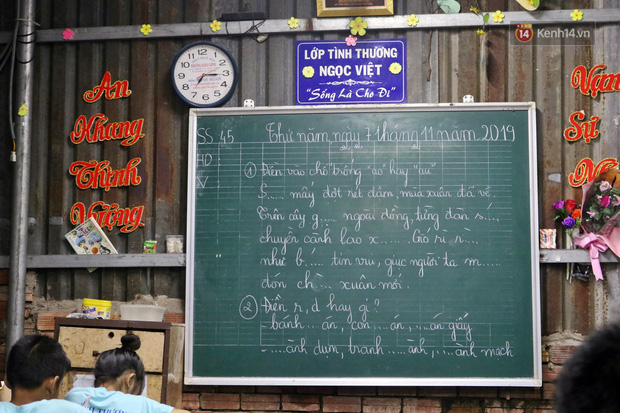 14 Kenh14.vn
LỚP TÌNH THƯƠNG
NGỌC VIỆT
"Sống Là Cho Đi"
An
Khang
Thịnh
Vượng
Vạn
Sự
SS 45 Thứ năm, ngày 7 tháng 11 năm 2019
HD
V
① Điền vào chỗ trống "ao" hay "au"
S..... mấy đợt rét đậm, mùa xuân đã về.
Trên cây g..... ngoài đồng, từng đàn s.....
chuyền cành lao x...... Gió rì r.....
như b..... tin vui, giục người ta m.....
đón ch..... xuân mới.
② Điền r, d hay gi?
- bánh ....án, con ....án, ....án giấy
- .....ành dụm, tranh .....ành, .....ành mạch